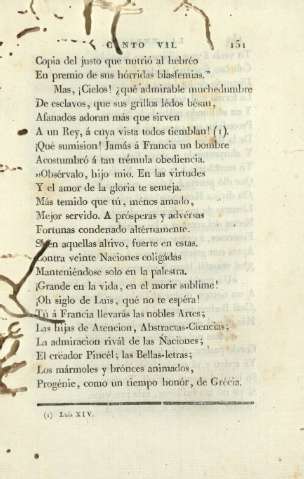 CANTO VII. 151
Copia del justo que nutrió al hebréo
En premio de sus hórridas blasfemias."
Mas, ¡Cielos! ¿qué admirable muchedumbre
De esclavos, que sus grillos lédos bésan,
Afanados adoran más que sirven
A un Rey, á cuya vista todos tiemblan! (1).
¡Qué sumision! Jamás á Francia un hombre
Acostumbró á tan trémula obediencia.
»Obsérvalo, hijo mio. En las virtudes
Y el amor de la gloria te semeja.
Más temido que tú, ménos amado,
Mejor servido. A prósperas y advérsas
Fortunas condenado altérnamente.
en aquellas altivo, fuerte en estas.
Contra veinte Naciones coligádas
Manteniéndose solo en la palestra.
¡Grande en la vida, en el morir sublime!
¡Oh siglo de Luis, qué no te espéra!
Tú á Francia llevarás las nobles Artes;
Las hijas de Atencion, Abstractas-Ciencias;
La admiracion rivál de las Naciones;
El creador Pincél; las Bellas-letras;
Los mármoles y brónces animados,
Progénie, como un tiempo honór, de Grécia.
(1) Luis XIV.